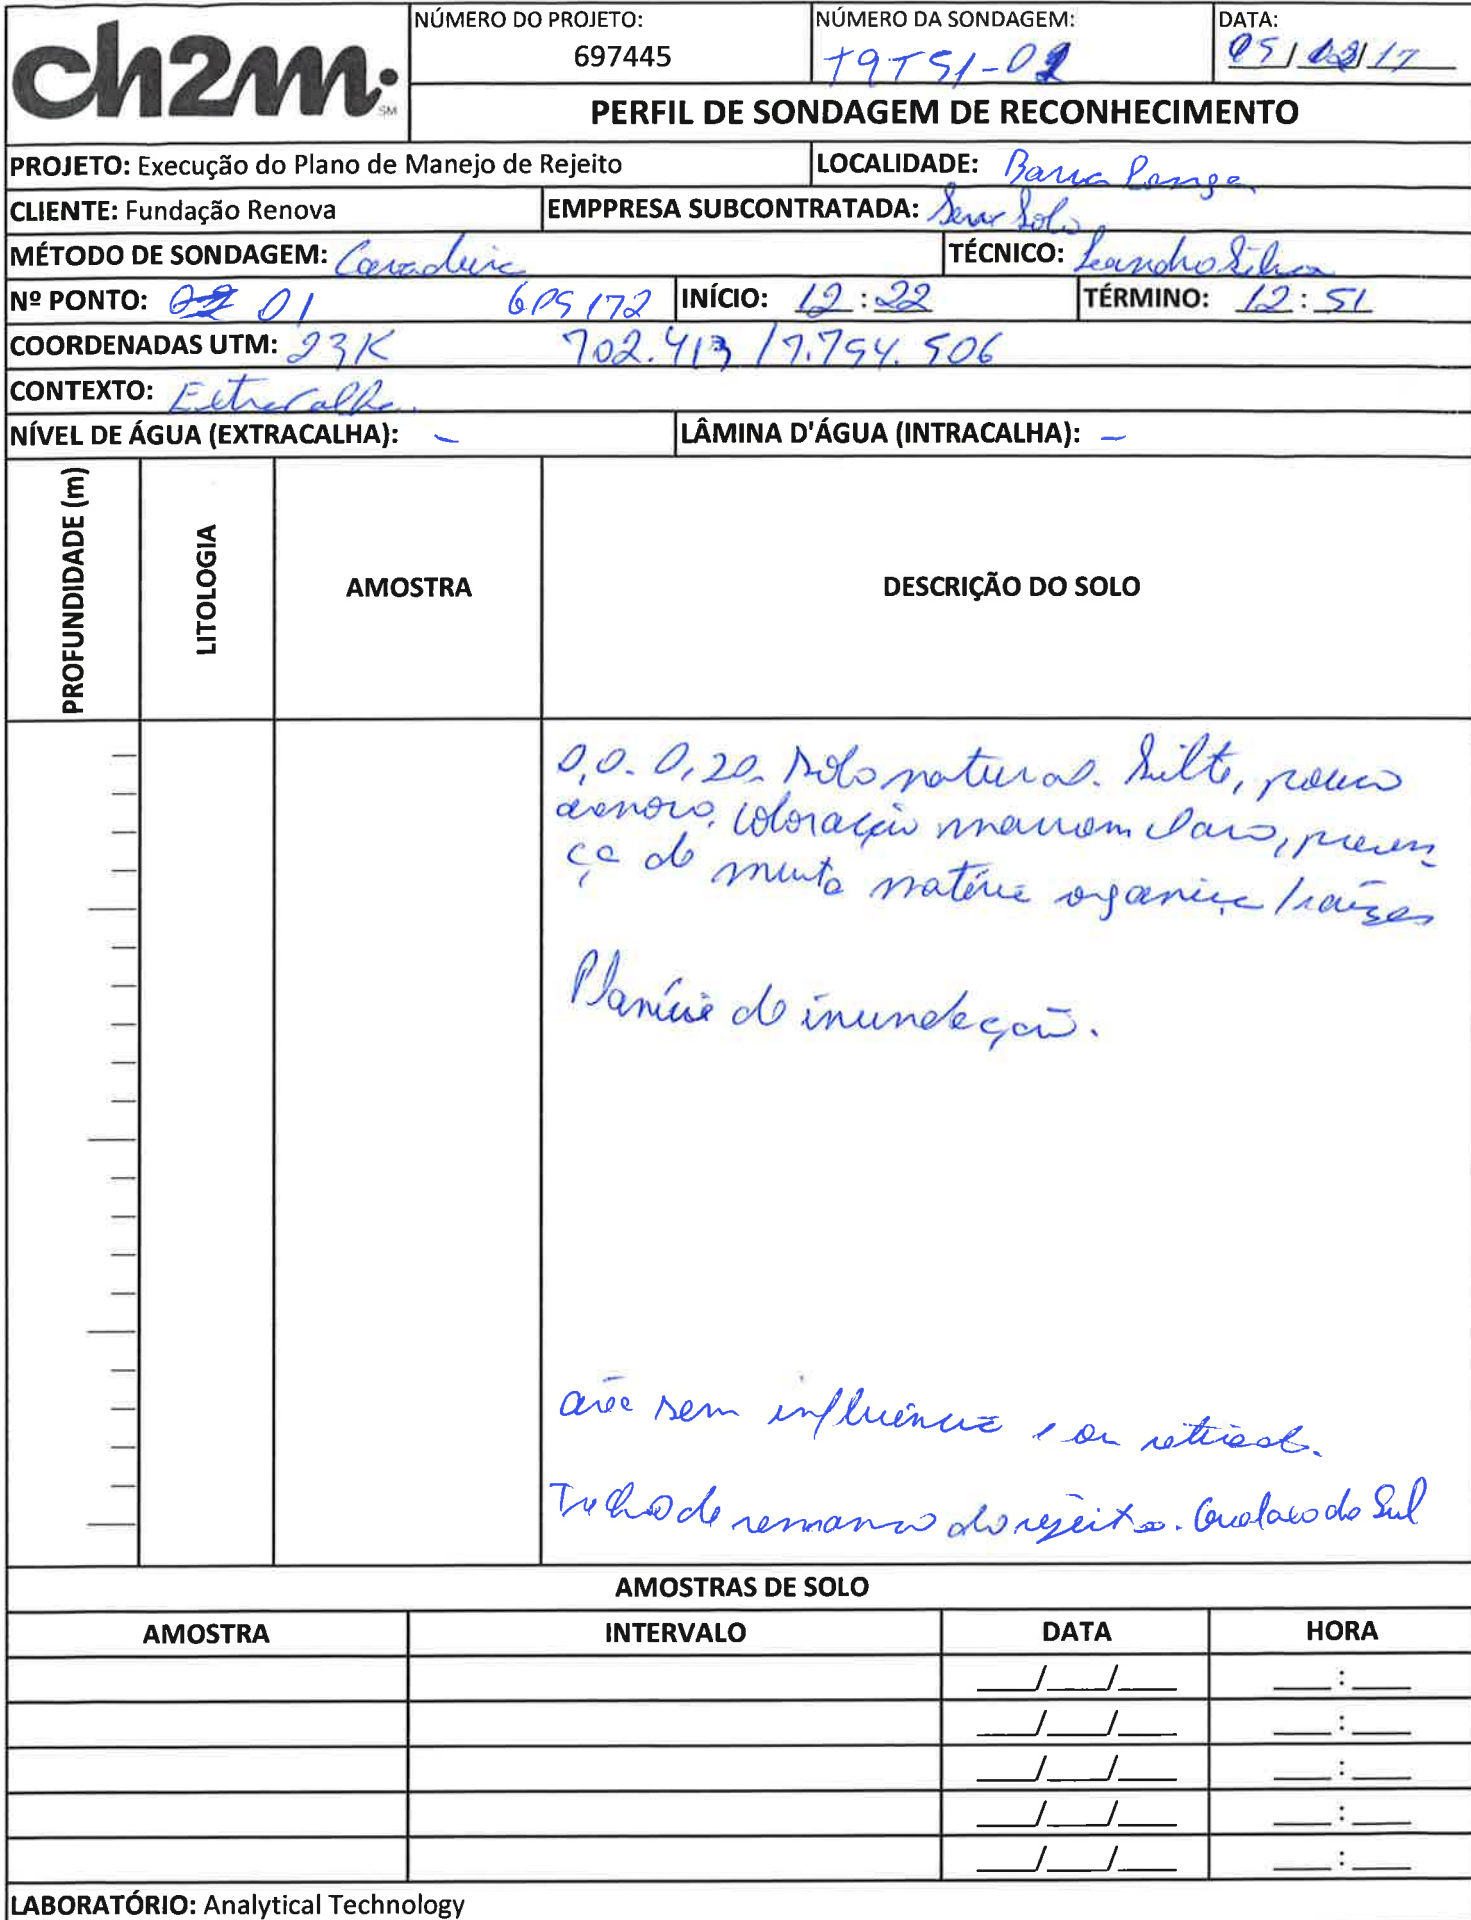 ch2m. SM
NÚMERO DO PROJETO:
697445
NÚMERO DA SONDAGEM:
T9TS1-02
DATA:
05/ /17
PERFIL DE SONDAGEM DE RECONHECIMENTO
PROJETO: Execução do Plano de Manejo de Rejeito
LOCALIDADE: Barra Longa
CLIENTE: Fundação Renova
EMPPRESA SUBCONTRATADA: Serv Solo
MÉTODO DE SONDAGEM: Cavadeira
TÉCNICO: Leandro Silva
Nº PONTO: 01 GPS 172
INÍCIO: 12:22
TÉRMINO: 12:51
COORDENADAS UTM: 23K 702.413 / 7.754.506
CONTEXTO: Extracalha.
NÍVEL DE ÁGUA (EXTRACALHA): –
LÂMINA D'ÁGUA (INTRACALHA): –
PROFUNDIDADE (m)
LITOLOGIA
AMOSTRA
DESCRIÇÃO DO SOLO
0,0-0,20- Solo natural. Silte, pouco
arenoso, coloração marrom claro, presen
ça de muita matéria organica/raízes
Planície de inundação.
área sem influência e ou
Trecho de remanso do rejeito. Gualaxo do Sul
AMOSTRAS DE SOLO
AMOSTRA
INTERVALO
DATA
HORA
___/___/___ ___:___
___/___/___ ___:___
___/___/___ ___:___
___/___/___ ___:___
___/___/___ ___:___
LABORATÓRIO: Analytical Technology